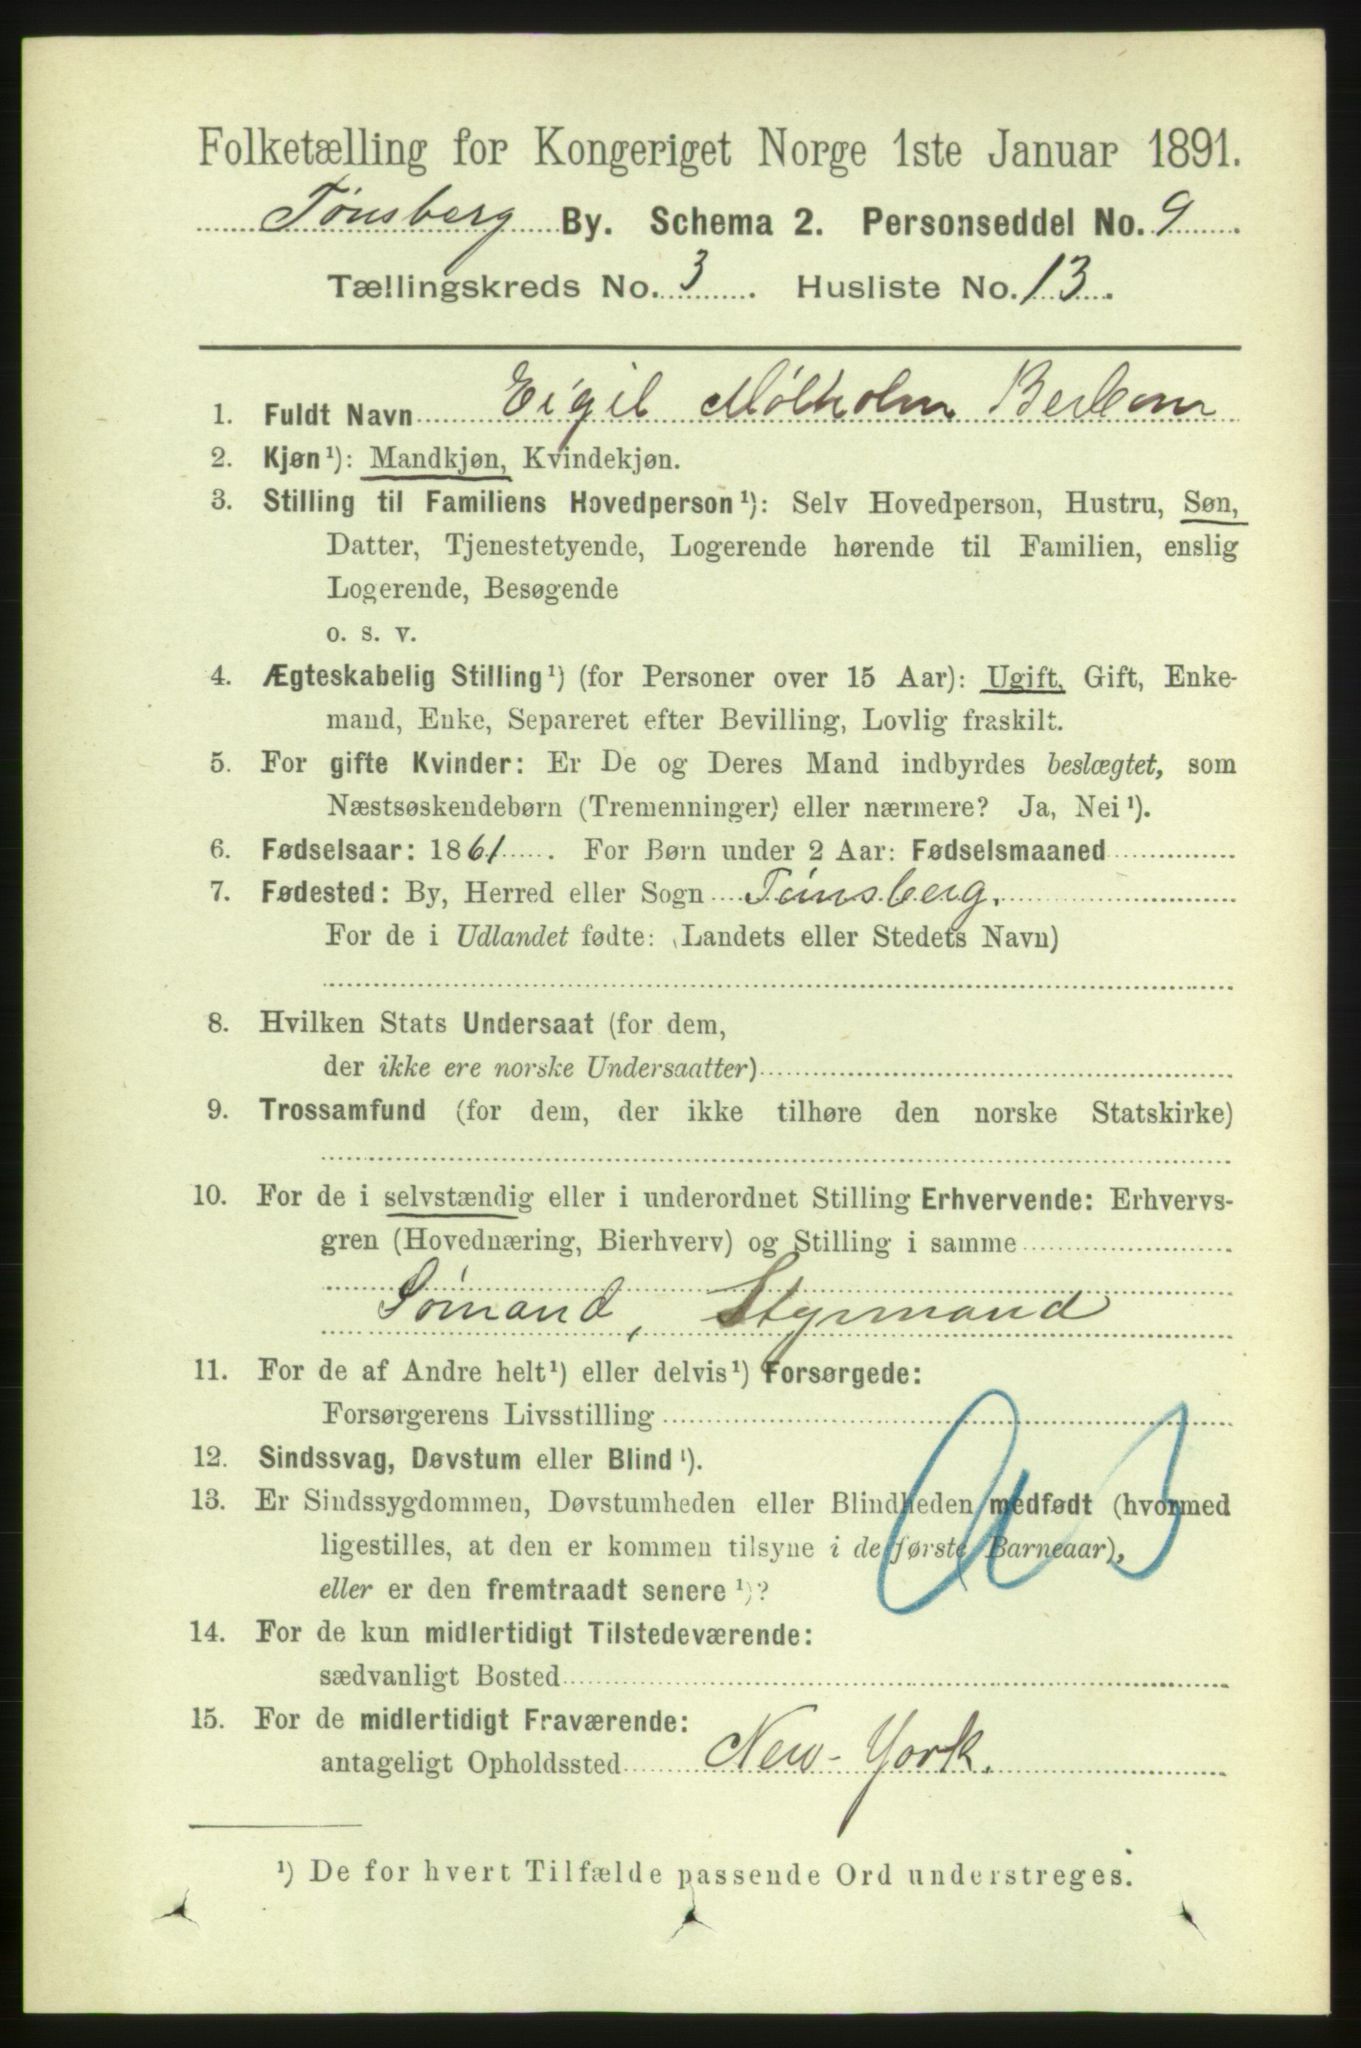 Folketælling for Kongeriget Norge 1ste Januar 1891.
Tønsberg By. Schema 2. Personseddel No. 9.
Tællingskreds No. 3. Husliste No. 13.
1. Fuldt Navn Eigil Mølholm
2. Kjøn¹): Mandkjøn, Kvindekjøn.
3. Stilling til Familiens Hovedperson¹): Selv Hovedperson, Hustru, Søn,
Datter, Tjenestetyende, Logerende hørende til Familien, enslig
Logerende, Besøgende
o. s. v.
4. Ægteskabelig Stilling¹) (for Personer over 15 Aar): Ugift, Gift, Enke-
mand, Enke, Separeret efter Bevilling, Lovlig fraskilt.
5. For gifte Kvinder: Er De og Deres Mand indbyrdes beslægtet, som
Næstsøskendebørn (Tremenninger) eller nærmere? Ja, Nei¹).
6. Fødselsaar: 1861. For Børn under 2 Aar: Fødselsmaaned
7. Fødested: By, Herred eller Sogn Tønsberg.
For de i Udlandet fødte: (Landets eller Stedets Navn)
8. Hvilken Stats Undersaat (for dem,
der ikke ere norske Undersaatter)
9. Trossamfund (for dem, der ikke tilhøre den norske Statskirke)
10. For de i selvstændig eller i underordnet Stilling Erhvervende: Erhvervs-
gren (Hovednæring, Bierhverv) og Stilling i samme
Sømand, Styrmand
11. For de af Andre helt¹) eller delvis¹) Forsørgede:
Forsørgerens Livsstilling
12. Sindssvag, Døvstum eller Blind¹).
13. Er Sindssygdommen, Døvstumheden eller Blindheden medfødt (hvormed
ligestilles, at den er kommen tilsyne i de første Barneaar),
eller er den fremtraadt senere¹)?
14. For de kun midlertidigt Tilstedeværende:
sædvanligt Bosted
15. For de midlertidigt Fraværende:
antageligt Opholdssted New-York.
¹) De for hvert Tilfælde passende Ord understreges.